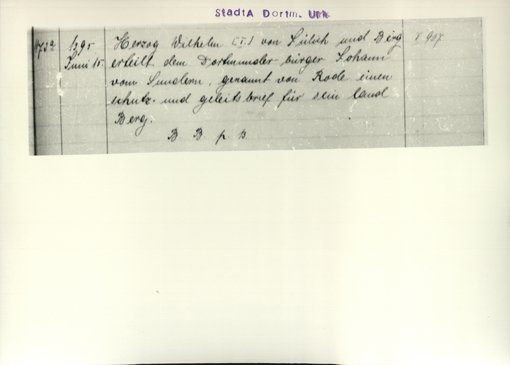 StadtA Dortm. Urk
1395 Herzog Wilhelm (I.) von Jülich und Berg V 907
Juni 15. erteilt dem Dortmunder bürger Johann
vom Sundern, genannt von Rode einen
schutz- und geleitsbrief für sein land
Berg.
B B p b.